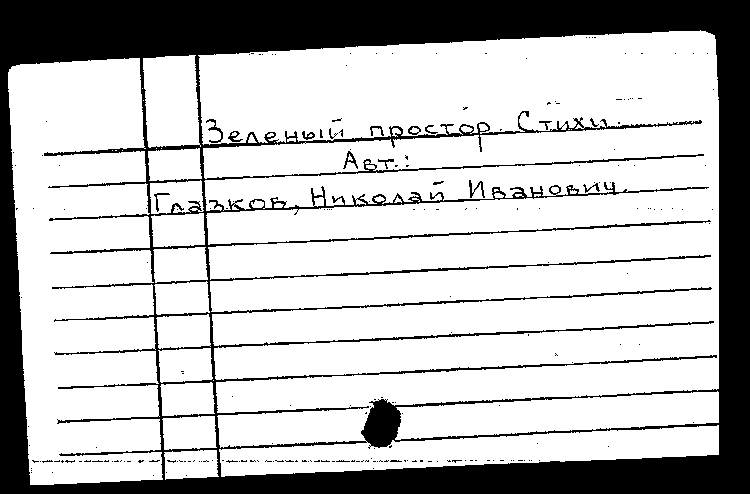 Зеленый простор. Стихи.
Авт.:
Глазков, Николай Иванович.